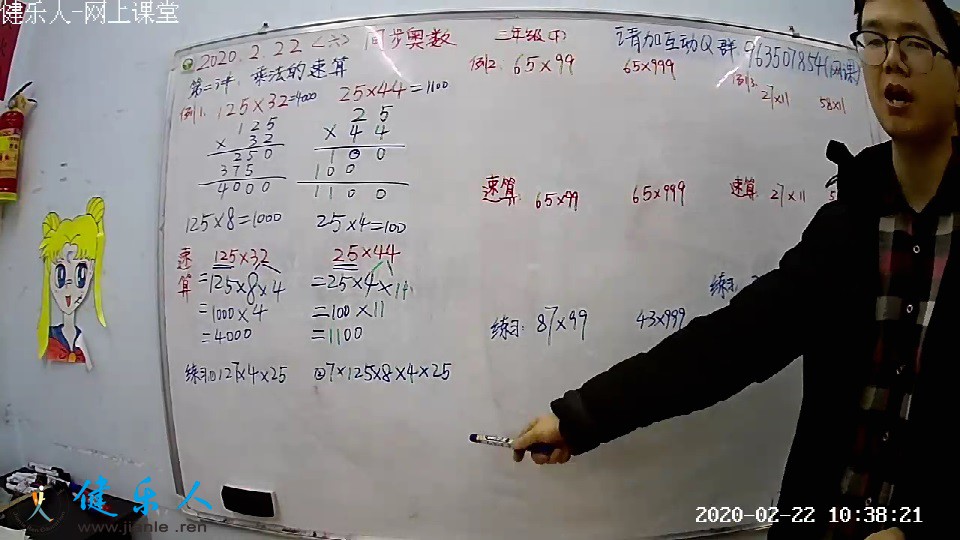 健乐人-网上课堂
2020.2.22<六> 同步奥数 三年级(下) 请加互动Q群963501854(网课)
第二讲:乘法的速算
例1. 125×32=4000 25×44=1100
125
× 32
250
375
4000
25
× 44
100
100
1100
125×8=1000 25×4=100
速算 125×32
=125×8×4
=1000×4
=4000
25×44
=25×4×11
=100×11
=1100
练习①127×4×25 ②7×125×8×4×25
例2. 65×99 65×999
速算: 65×99 65×999
练习: 87×99 43×999
例3. 27×11 58×11
速算: 27×11
练习:
健乐人
www.jianle.ren
2020-02-22 10:38:21